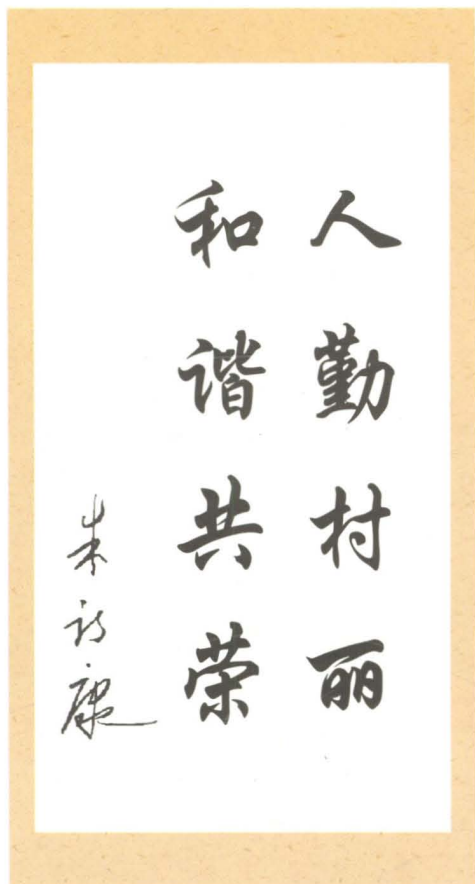 人勤村丽
和谐共荣
朱诗康